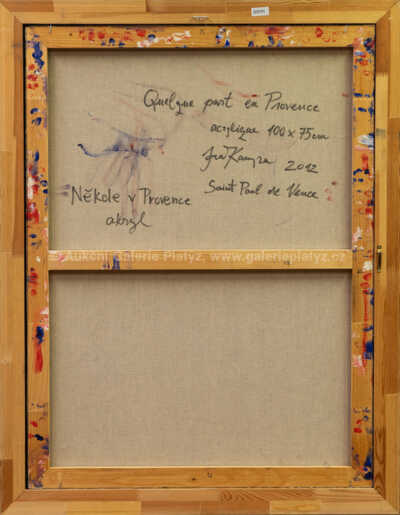 Quelque part en Provence
acrylique 100 x 75cm
2012
Saint Paul de Vence
Někole v Provence
akryl
© Aukční Galerie Platýz, www.galerieplatyz.cz